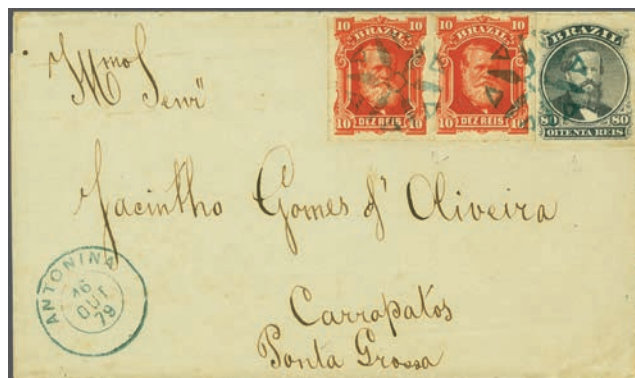 10 BRAZIL 10
10 DEZ REIS 10
10 BRAZIL 10
10 DEZ REIS 10
BRAZIL
80 80
OITENTA REIS
Illmo
Senr
Jacintho Gomes d' Oliveira
Carrapatos
Ponta Grossa
ANTONINA
16
OUT
79